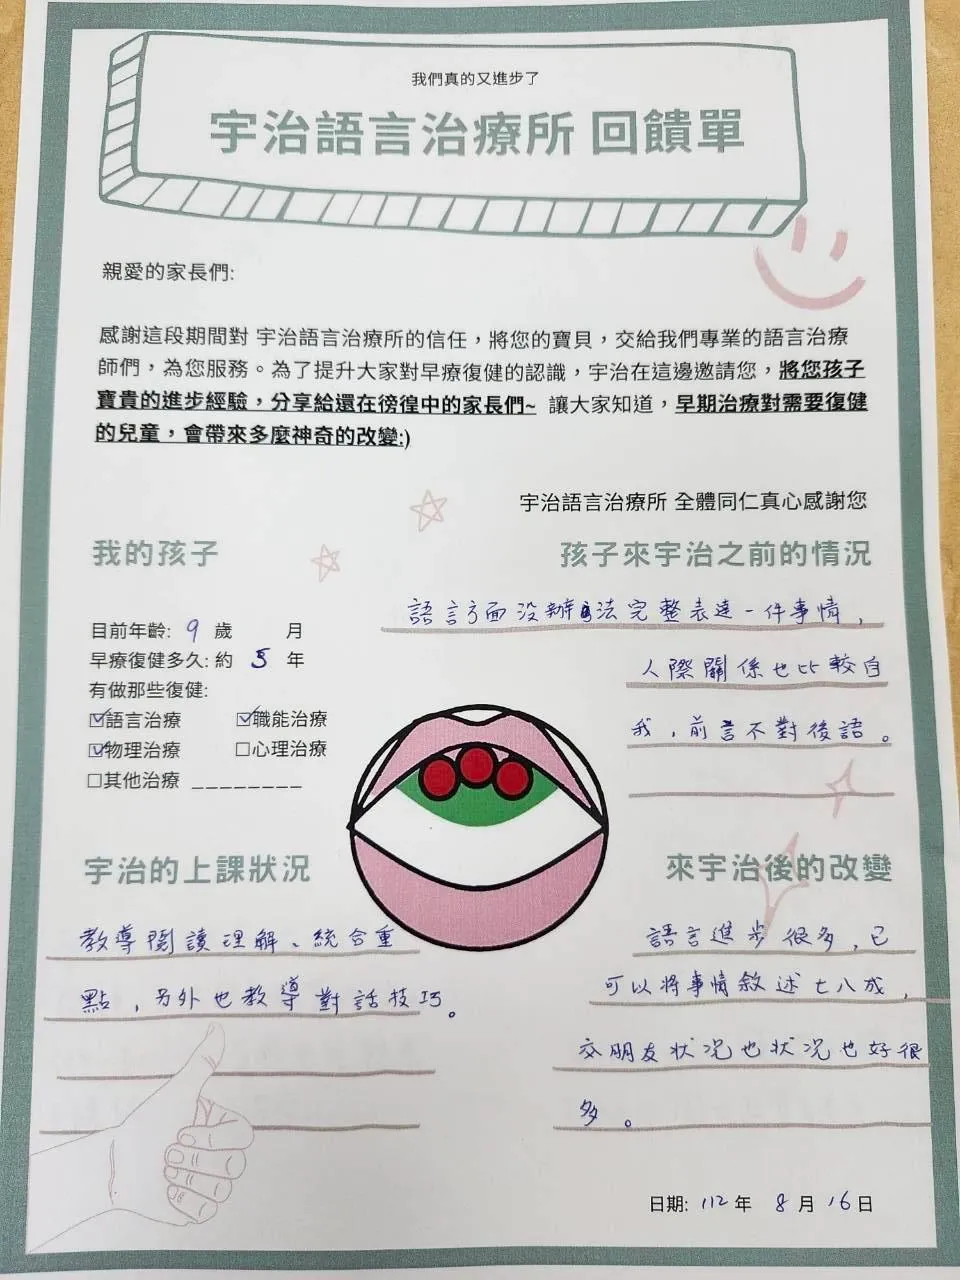 我們真的又進步了
宇治語言治療所 回饋單
親愛的家長們:
感謝這段期間對 宇治語言治療所的信任，將您的寶貝，交給我們專業的語言治療
師們，為您服務。為了提升大家對早療復健的認識，宇治在這邊邀請您，將您孩子
寶貴的進步經驗，分享給還在徬徨中的家長們~ 讓大家知道，早期治療對需要復健
的兒童，會帶來多麼神奇的改變:)
宇治語言治療所 全體同仁真心感謝您
我的孩子
目前年齡: 9 歲 月
早療復健多久: 約 5 年
有做那些復健:
☑語言治療 ☑職能治療
☑物理治療 ☐心理治療
☐其他治療 ________
孩子來宇治之前的情況
語言方面沒辦法完整表達一件事情，
人際關係也比較自
我，前言不對後語。
宇治的上課狀況
教導閱讀理解、統合重
點，另外也教導對話技巧。
來宇治後的改變
語言進步很多，已
可以將事情敘述七八成，
交朋友狀況也狀況也好很
多。
日期: 112 年 8 月 16 日